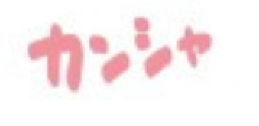 カンシャ